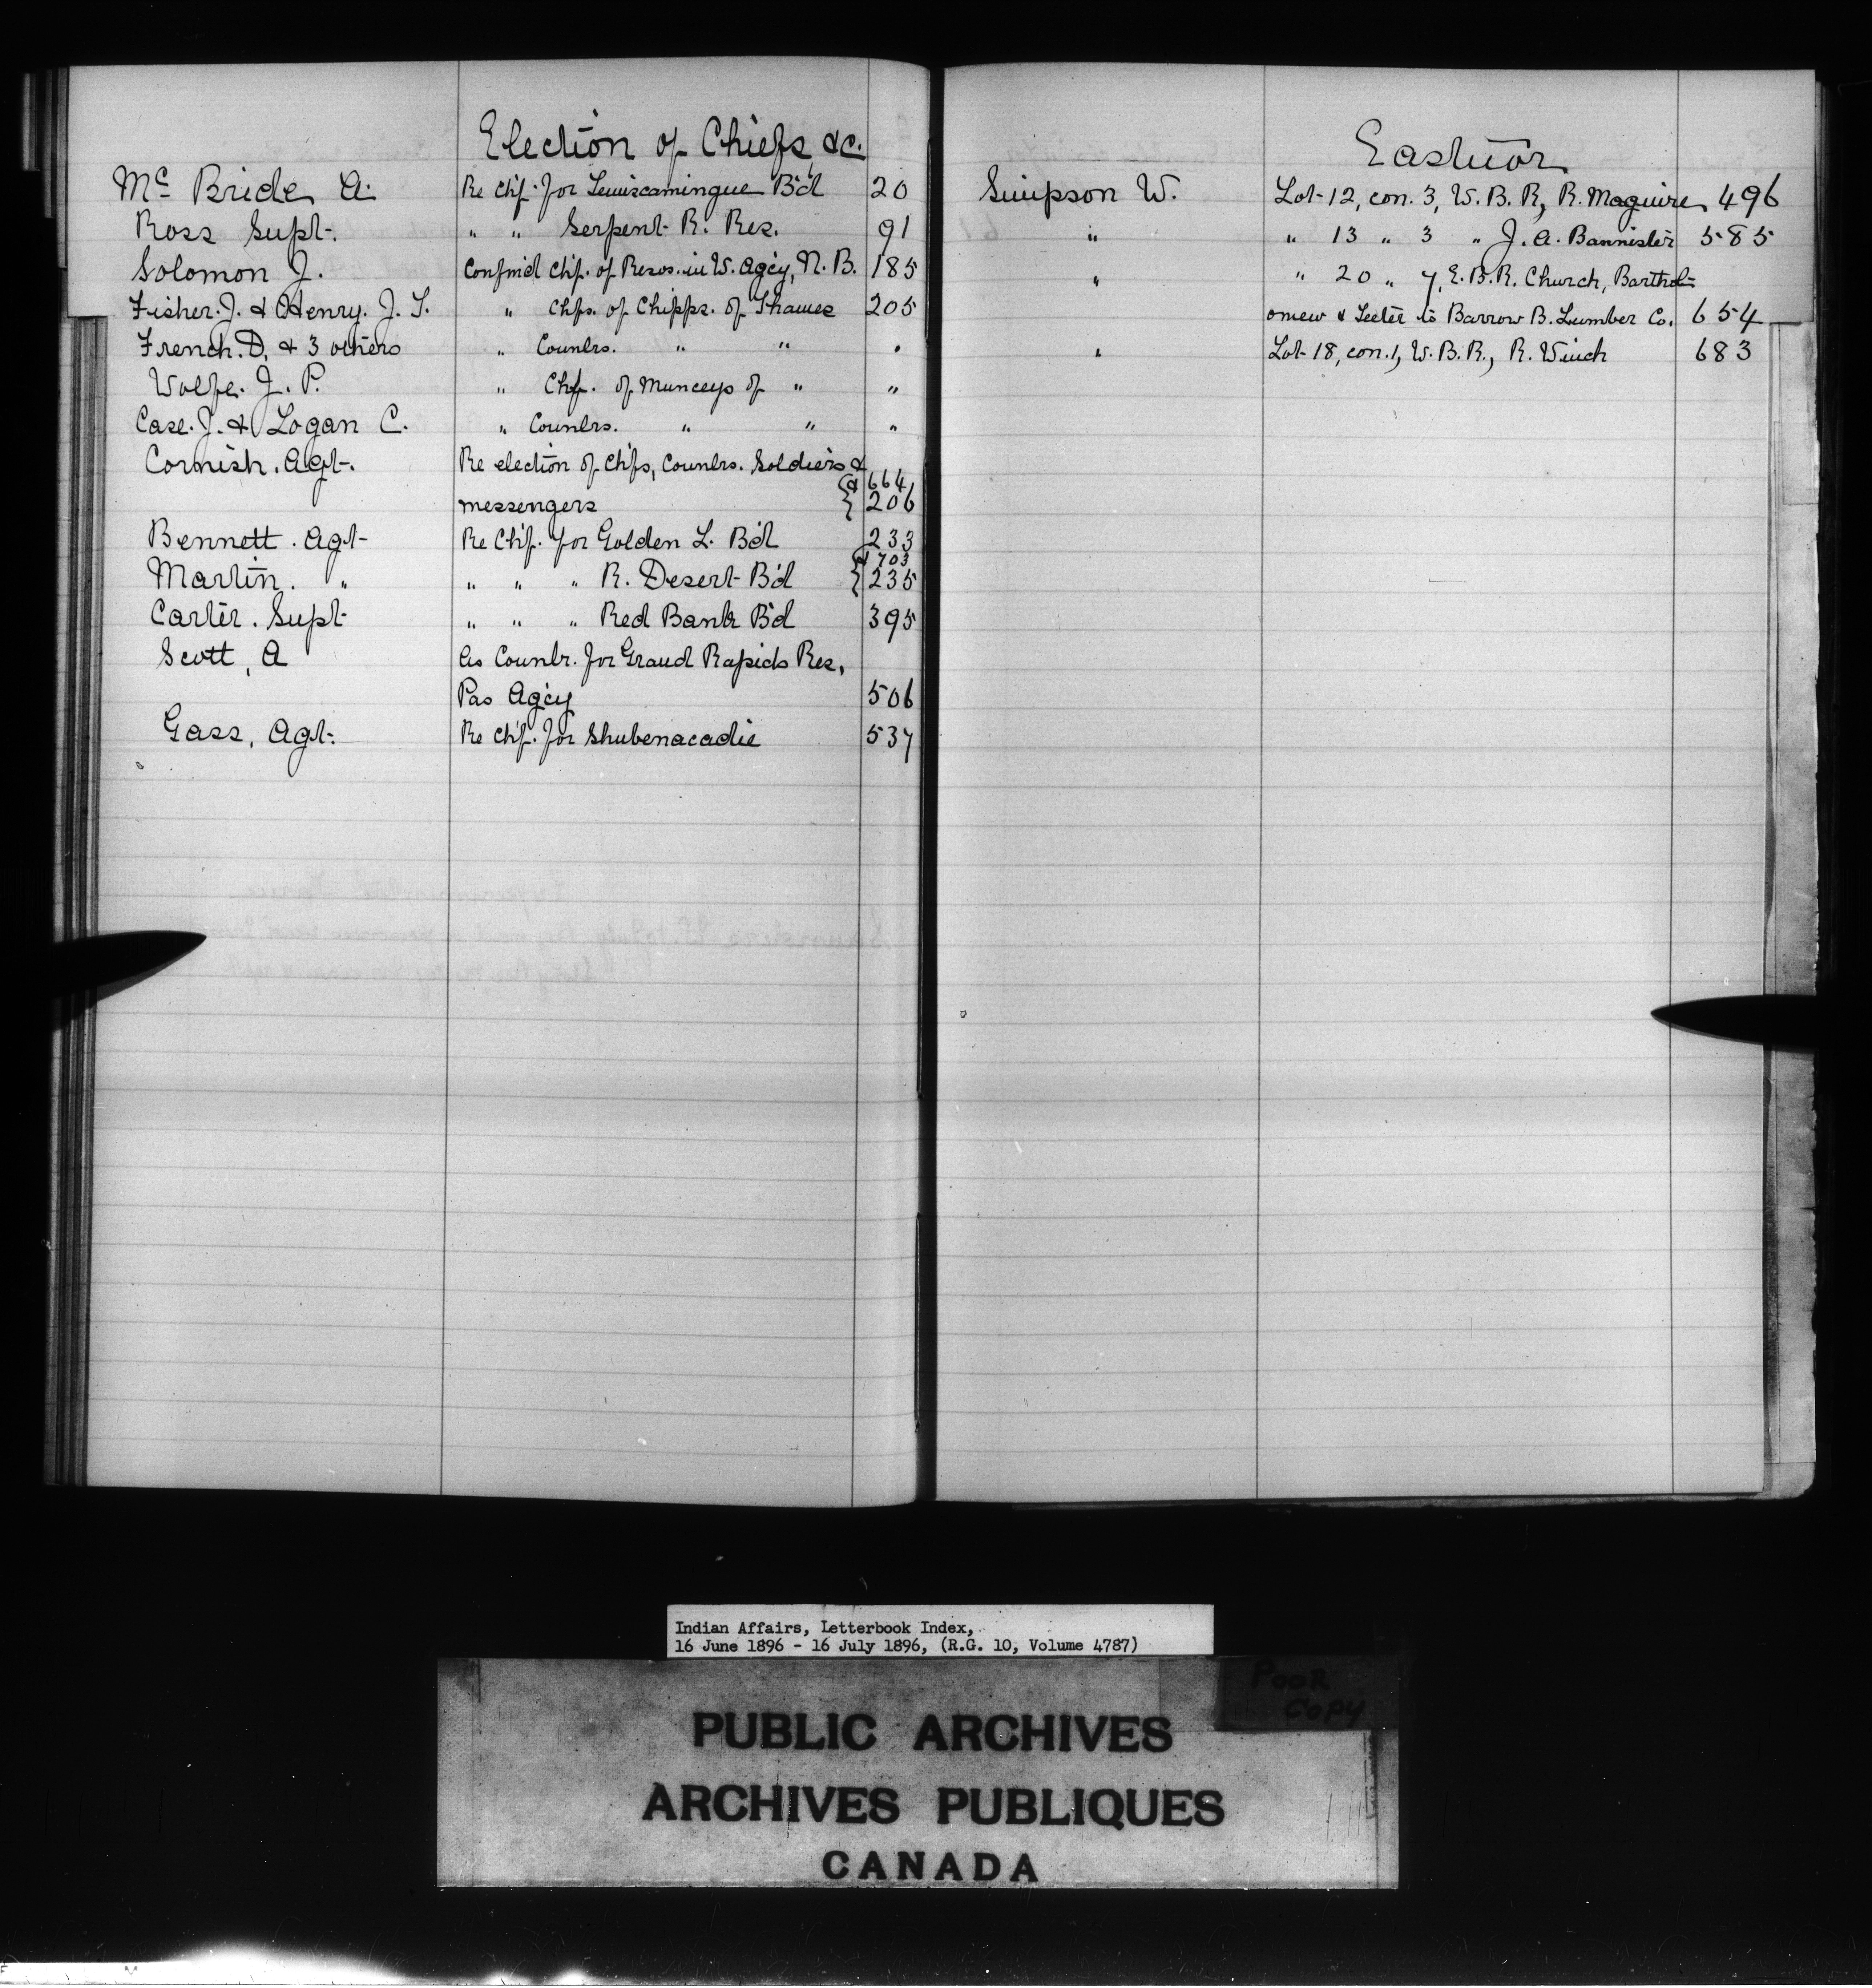 Election of Chiefs &c.
Mc Bride A. Re Chf. for Temiscamingue B'd 20
Ross Supt. " " Serpent R. Res. 91
Solomon J. Confmd Chf. of Resvs. in W. Agcy, N. B. 185
Fisher. J. & Henry. J. T. " Chfs. of Chipps. of Thames 205
French. D. & 3 others " Counlrs. " " "
Wolfe. J. P. " Chf. of Munceys of " "
Case. J. & Logan C. " Counlrs. " " "
Cornish. Agt. Re election of Chfs, Counlrs. Soldiers &
& 664
messengers { 206
Bennett. Agt Re Chf. for Golden L. B'd 233
& 703
Martin. " " " " R. Desert B'd { 235
Carter. Supt " " " Red Bank B'd 395
Scott, A As Counlr. for Grand Rapids Res,
Pas Agcy 506
Gass, Agt. Re Chf. for Shubenacadie 537
Eastnor
Simpson W. Lot 12, con. 3, W. B. R, R. Maguire 496
" " 13 " 3 " J. A. Bannister 585
" " 20 " 7, E. B. R. Church, Barthol-
omew & Teeter to Barrow B. Lumber Co. 654
" Lot 18, con. 1, W. B. R., R. Winch 683
Indian Affairs, Letterbook Index,
16 June 1896 - 16 July 1896, (R.G. 10, Volume 4787)
POOR
COPY
PUBLIC ARCHIVES
ARCHIVES PUBLIQUES
CANADA